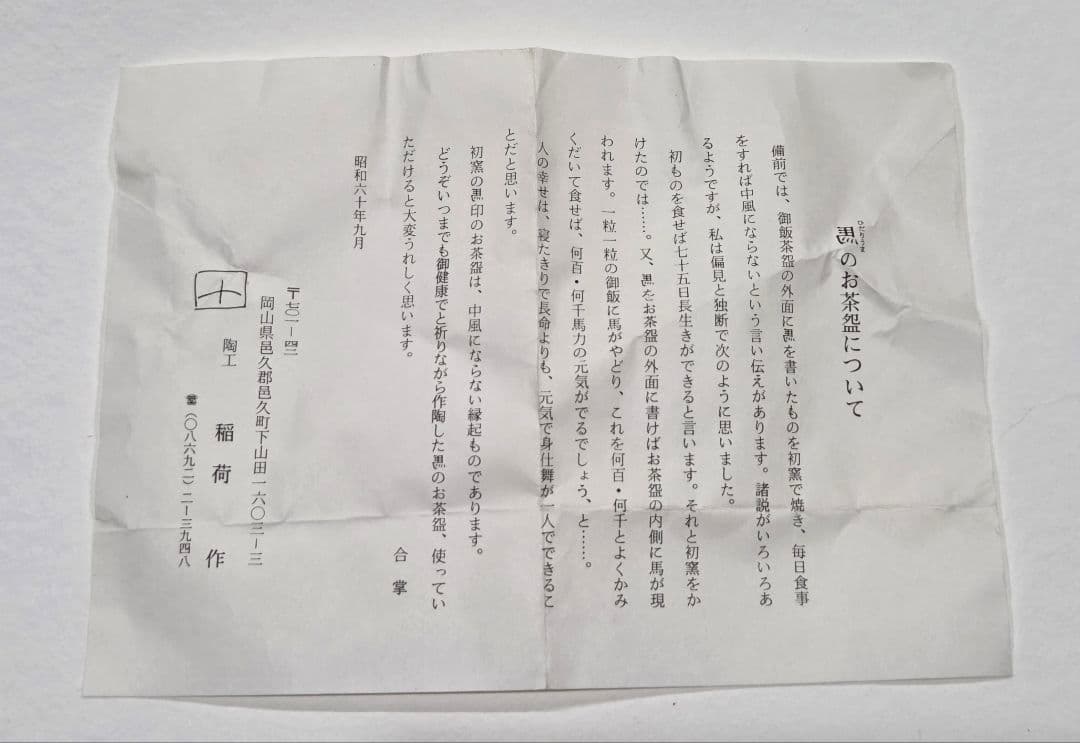 ひだりうま
馬のお茶盌について
備前では、御飯茶盌の外面に馬を書いたものを初窯で焼き、毎日食事
をすれば中風にならないという言い伝えがあります。諸説がいろいろあ
るようですが、私は偏見と独断で次のように思いました。
初ものを食せば七十五日長生きができると言います。それと初窯をか
けたのでは……。又、馬をお茶盌の外面に書けばお茶盌の内側に馬が現
われます。一粒一粒の御飯に馬がやどり、これを何百・何千とよくかみ
くだいて食せば、何百・何千馬力の元気がでるでしょう、と……。
人の幸せは、寝たきりで長命よりも、元気で身仕舞が一人でできるこ
とだと思います。
初窯の馬印のお茶盌は、中風にならない縁起ものであります。
どうぞいつまでも御健康でと祈りながら作陶した馬のお茶盌、使ってい
ただけると大変うれしく思います。
合掌
昭和六十年九月
〒七〇一−四二
岡山県邑久郡邑久町下山田一六〇三−三
十 陶工 稲荷 作
☎(〇八六九二)二−三九四八